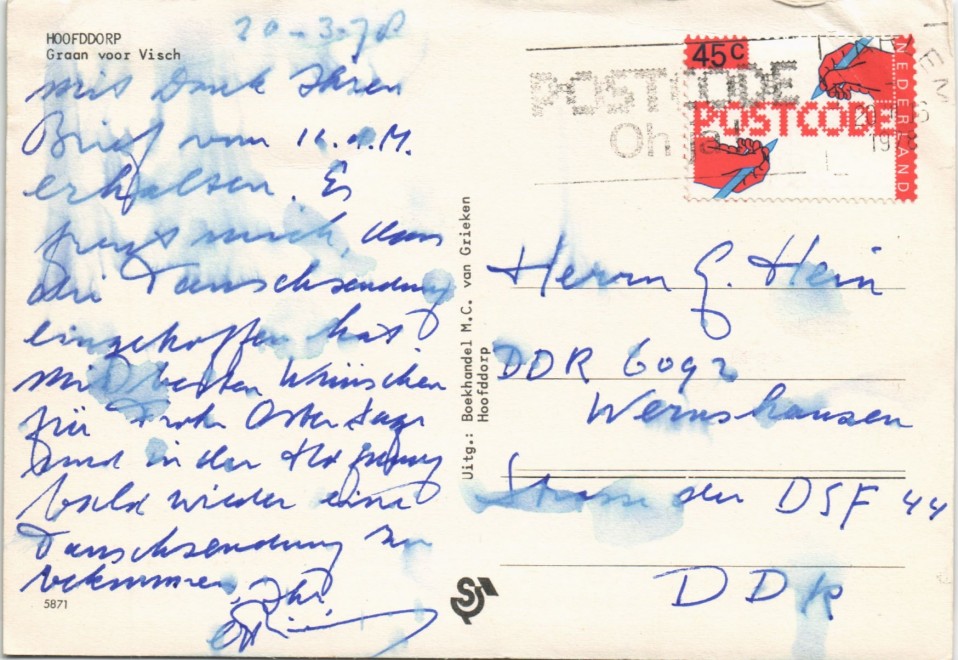 HOOFDDORP
Graan voor Visch
20-3-78
mit Dank Ihren
Brief vom 16. d. M.
erhalten. Es
freut mich, dass
die Tauschsendung
eingetroffen hat
Mit besten Wünschen
für Frohe Ostertage
und in der Hoffnung
bald wieder eine
Tauschsendung zu
bekommen, Ihr
5871
Uitg.: Boekhandel M.C. van Grieken
Hoofddorp
45c
POSTCODE
NEDERLAND
POSTCODE
Oh
Herrn G. Hein
DDR 6092
Wernshausen
Strasse der DSF 44
DDR